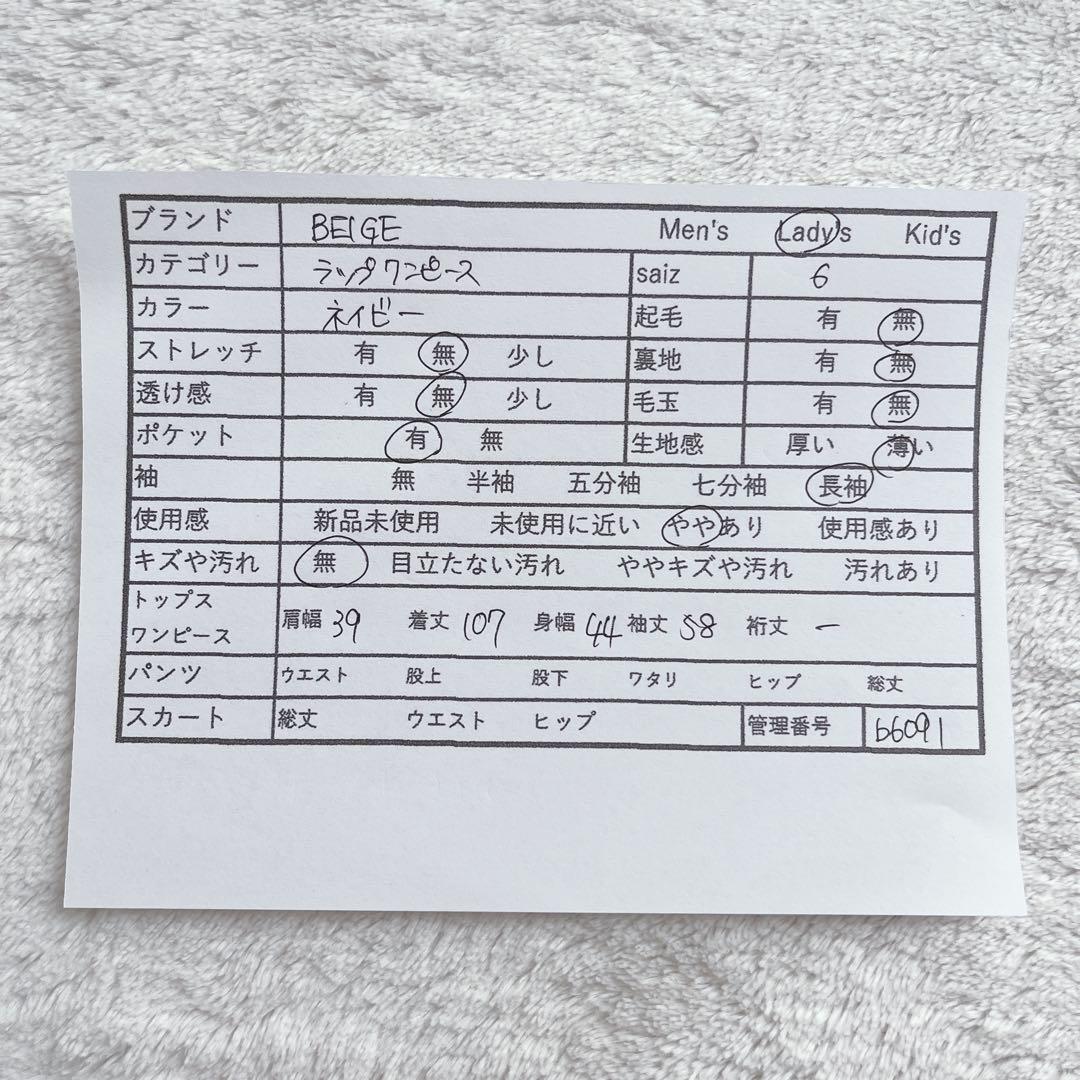 ブランド BEIGE Men's Lady's Kid's
カテゴリー ラップワンピース saiz 6
カラー ネイビー 起毛 有 無
ストレッチ 有 無 少し 裏地 有 無
透け感 有 無 少し 毛玉 有 無
ポケット 有 無 生地感 厚い 薄い
袖 無 半袖 五分袖 七分袖 長袖
使用感 新品未使用 未使用に近い ややあり 使用感あり
キズや汚れ 無 目立たない汚れ ややキズや汚れ 汚れあり
トップス
ワンピース 肩幅 39 着丈 107 身幅 44 袖丈 58 裄丈 ー
パンツ ウエスト 股上 股下 ワタリ ヒップ 総丈
スカート 総丈 ウエスト ヒップ 管理番号 b6091